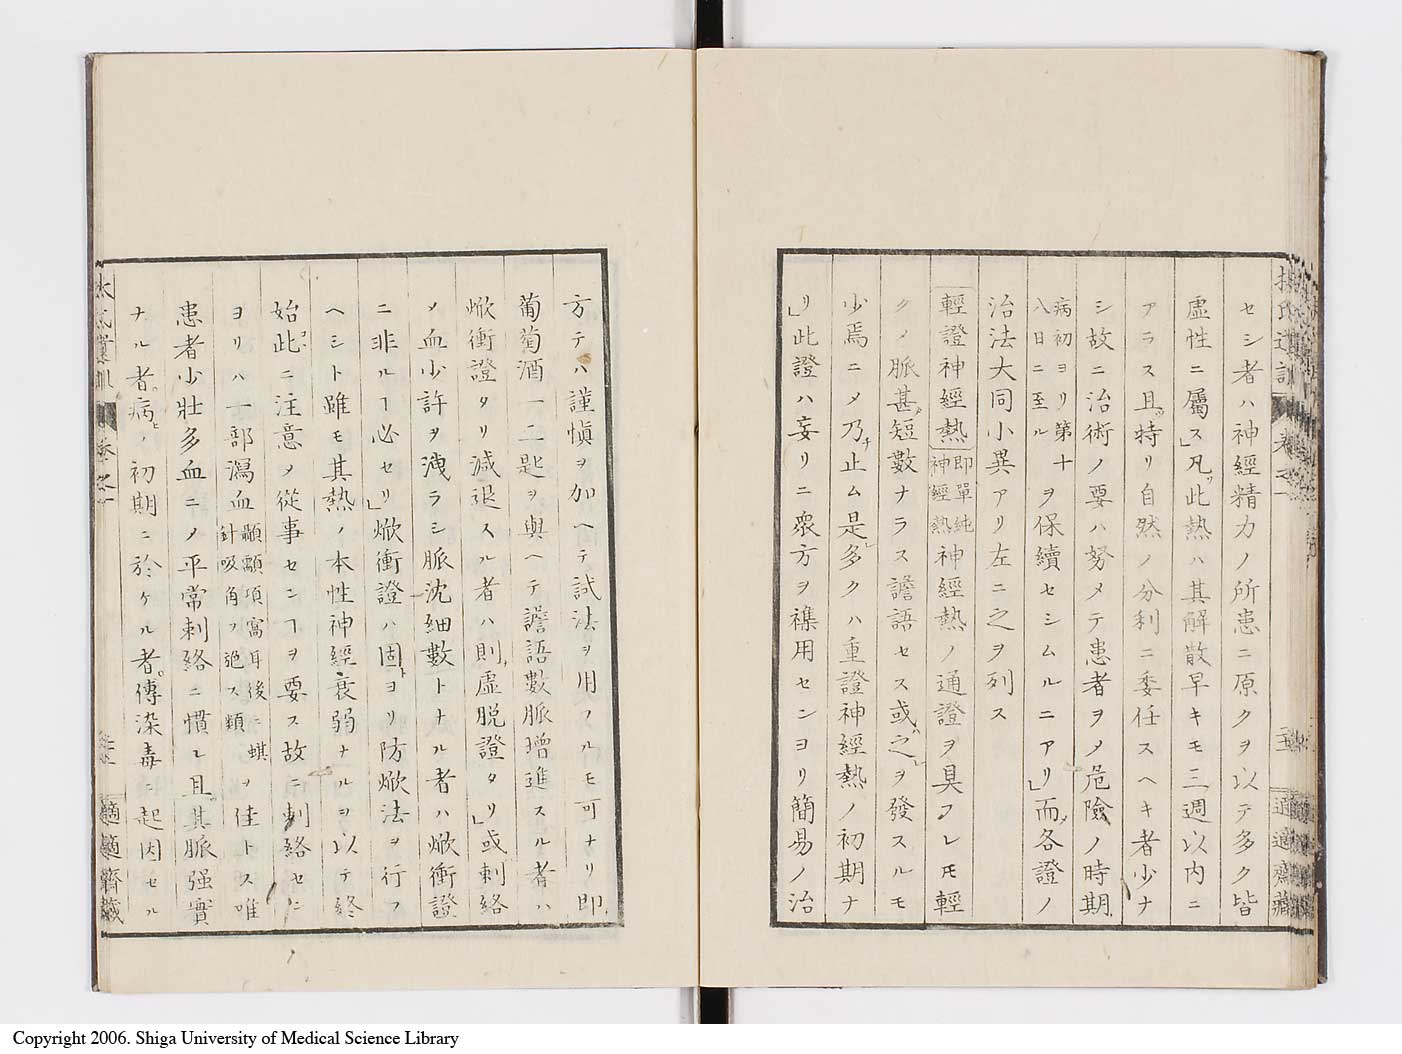 セシ者ハ神經精力ノ所患ニ原クヲ以テ多ク皆
虛性ニ屬ス」凡ソ此熱ハ其解散早キモ三週以内ニ
アラス且ツ特リ自然ノ分利ニ委任スヘキ者少ナ
シ故ニ治術ノ要ハ努メテ患者ヲメ危險ノ時期
病初ヨリ第十
八日ニ至ル
ヲ保續セシムルニアリ」而ノ各證ノ
治法大同小異アリ左ニ之ヲ列ス
輕證神經熱
即單純
神經熱
神經熱ノ通證ヲ具フレモ輕
クメ脈甚タ短數ナラス譫語セス或ハ之レヲ發スルモ
少焉ニメ乃チ止ム是レ多クハ重證神經熱ノ初期ナ
リ」此證ハ妄リニ衆方ヲ襍用センヨリ簡易ノ治
扶氏遺訓
卷之一
適適齋藏
方テハ謹愼ヲ加ヘテ試法ヲ用フルモ可ナリ即チ
葡萄酒一二匙ヲ與ヘテ譫語數脈增進スル者ハ
焮衝證タリ減退スル者ハ則チ虛脱證タリ」或ハ刺絡
メ血少許ヲ洩ラシ脈沈細數トナル者ハ焮衝證
ニ非ルヿ必セリ」焮衝證ハ固トヨリ防焮法ヲ行フ
ヘシト雖モ其熱ノ本性神經衰弱ナルヲ以テ終
始此ニ注意メ從事センヿヲ要ス故ニ刺絡セン
ヨリハ一部瀉血
顳顬項窩耳後ニ蜞
針吸角ヲ施ス類
ヲ佳トス唯
患者少壯多血ニメ平常刺絡ニ慣レ且ツ其脈强實
ナル者。病ヒノ初期ニ於ケル者。傳染毒ニ起因セル
扶氏遺訓
卷之一
適適齋藏
Copyright 2006. Shiga University of Medical Science Library